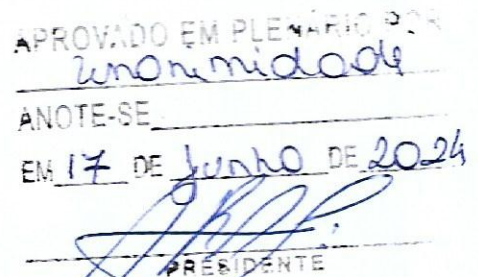 APROVADO EM PLENÁRIO POR
unanimidade
ANOTE-SE
EM 17 DE Junho DE 2024
PRESIDENTE